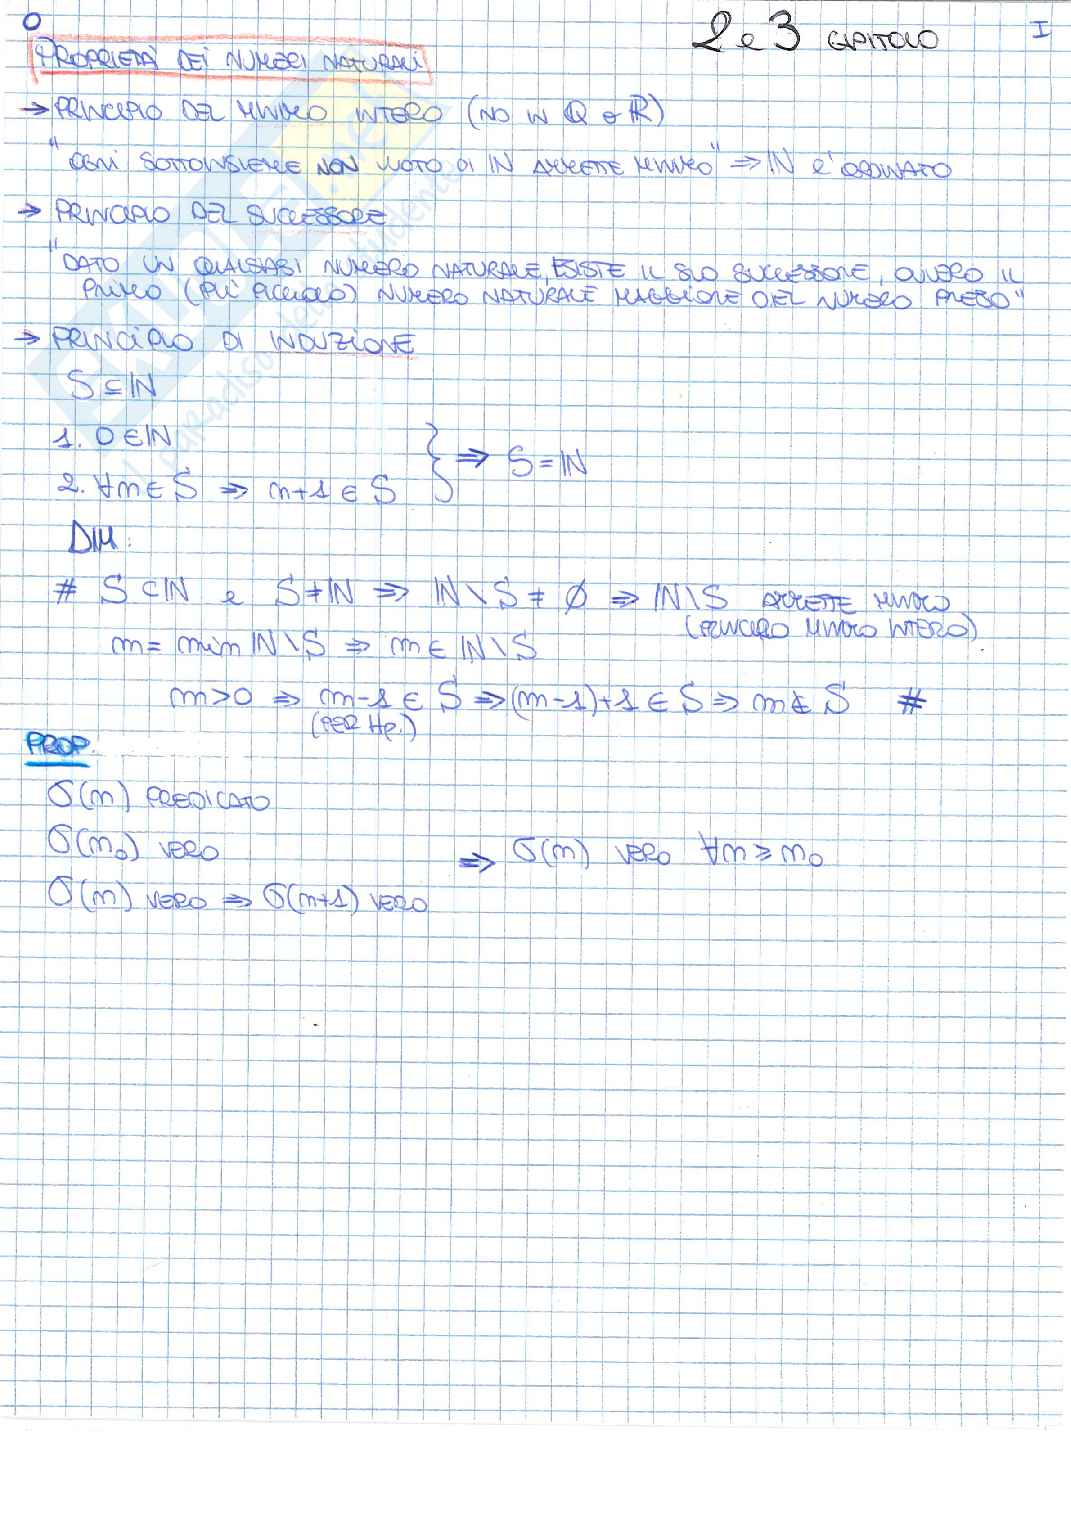 0
2 e 3 CAPITOLO
I
PROPRIETÀ DEI NUMERI NATURALI
→ PRINCIPIO DEL MINIMO INTERO (NO IN Q e R)
"OGNI SOTTOINSIEME NON VUOTO DI IN AMMETTE MINIMO" ⇒ IN e' ORDINATO
→ PRINCIPIO DEL SUCCESSORE
"DATO UN QUALSIASI NUMERO NATURALE, ESISTE IL SUO SUCCESSIONE, OVVERO IL
PRIMO (PIÙ PICCOLO) NUMERO NATURALE MAGGIORE DEL NUMERO PRESO"
→ PRINCIPIO DI INDUZIONE
S ⊆ IN
1. 0 ∈ IN
2. ∀n ∈ S ⇒ n+1 ∈ S } ⇒ S = IN
DIM.
# S ⊂ IN e S ≠ IN ⇒ IN \ S ≠ ∅ ⇒ IN \ S AMMETTE MINIMO
(PRINCIPIO MINIMO INTERO)
m = min IN \ S ⇒ m ∈ IN \ S
m > 0 ⇒ m-1 ∈ S ⇒ (m-1)+1 ∈ S ⇒ m ∈ S #
(PER Hp.)
PROP.
σ(n) PREDICATO
σ(n₀) VERO ⇒ σ(n) VERO ∀n ≥ n₀
σ(n) VERO ⇒ σ(n+1) VERO